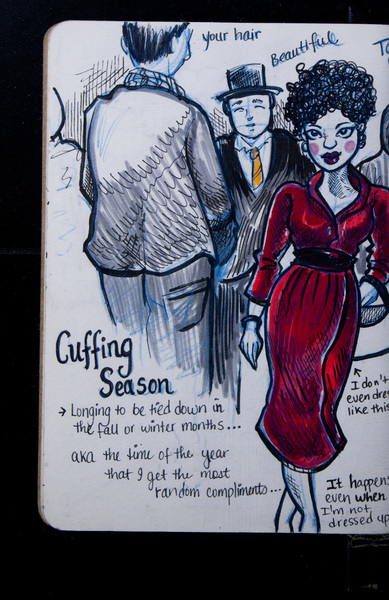 your hair
Beautiful
Cuffing
Season
→ Longing to be tied down in
the fall or winter months...
aka the time of the year
that I get the most
random compliments...
I don't
even dres
like this
It happens
even when
I'm not
dressed up